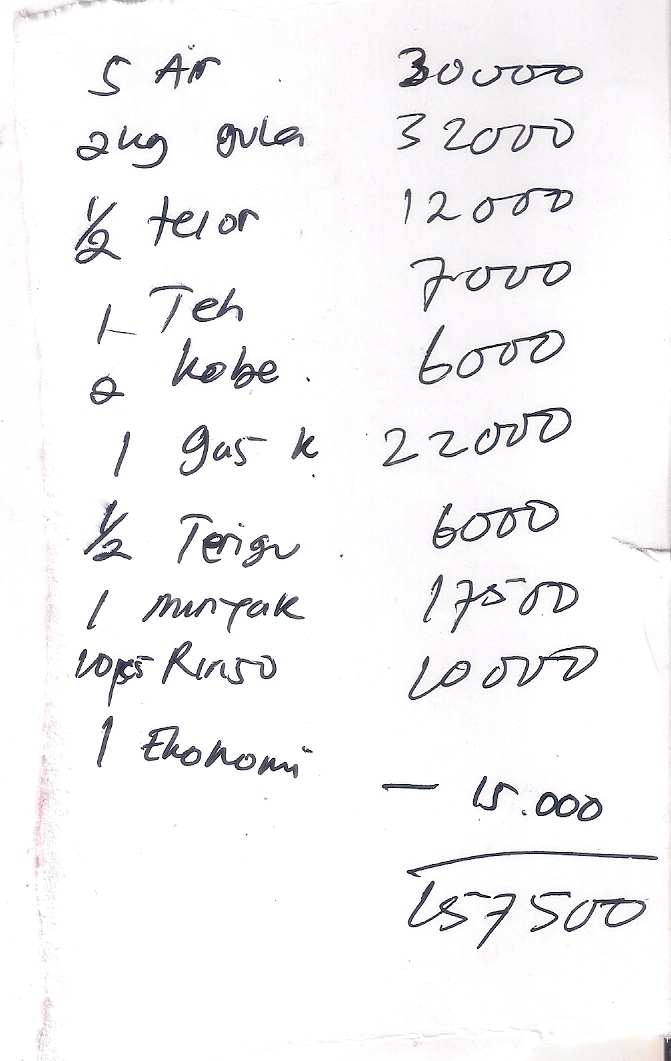 5 Air 30000
2 kg gula 32000
1/2 telor 12000
1 Teh 7000
2 kobe 6000
1 gas k 22000
1/2 Terigu 6000
1 minyak 17500
10 pcs Rinso 10000
1 Ekonomi
— 15.000
157500